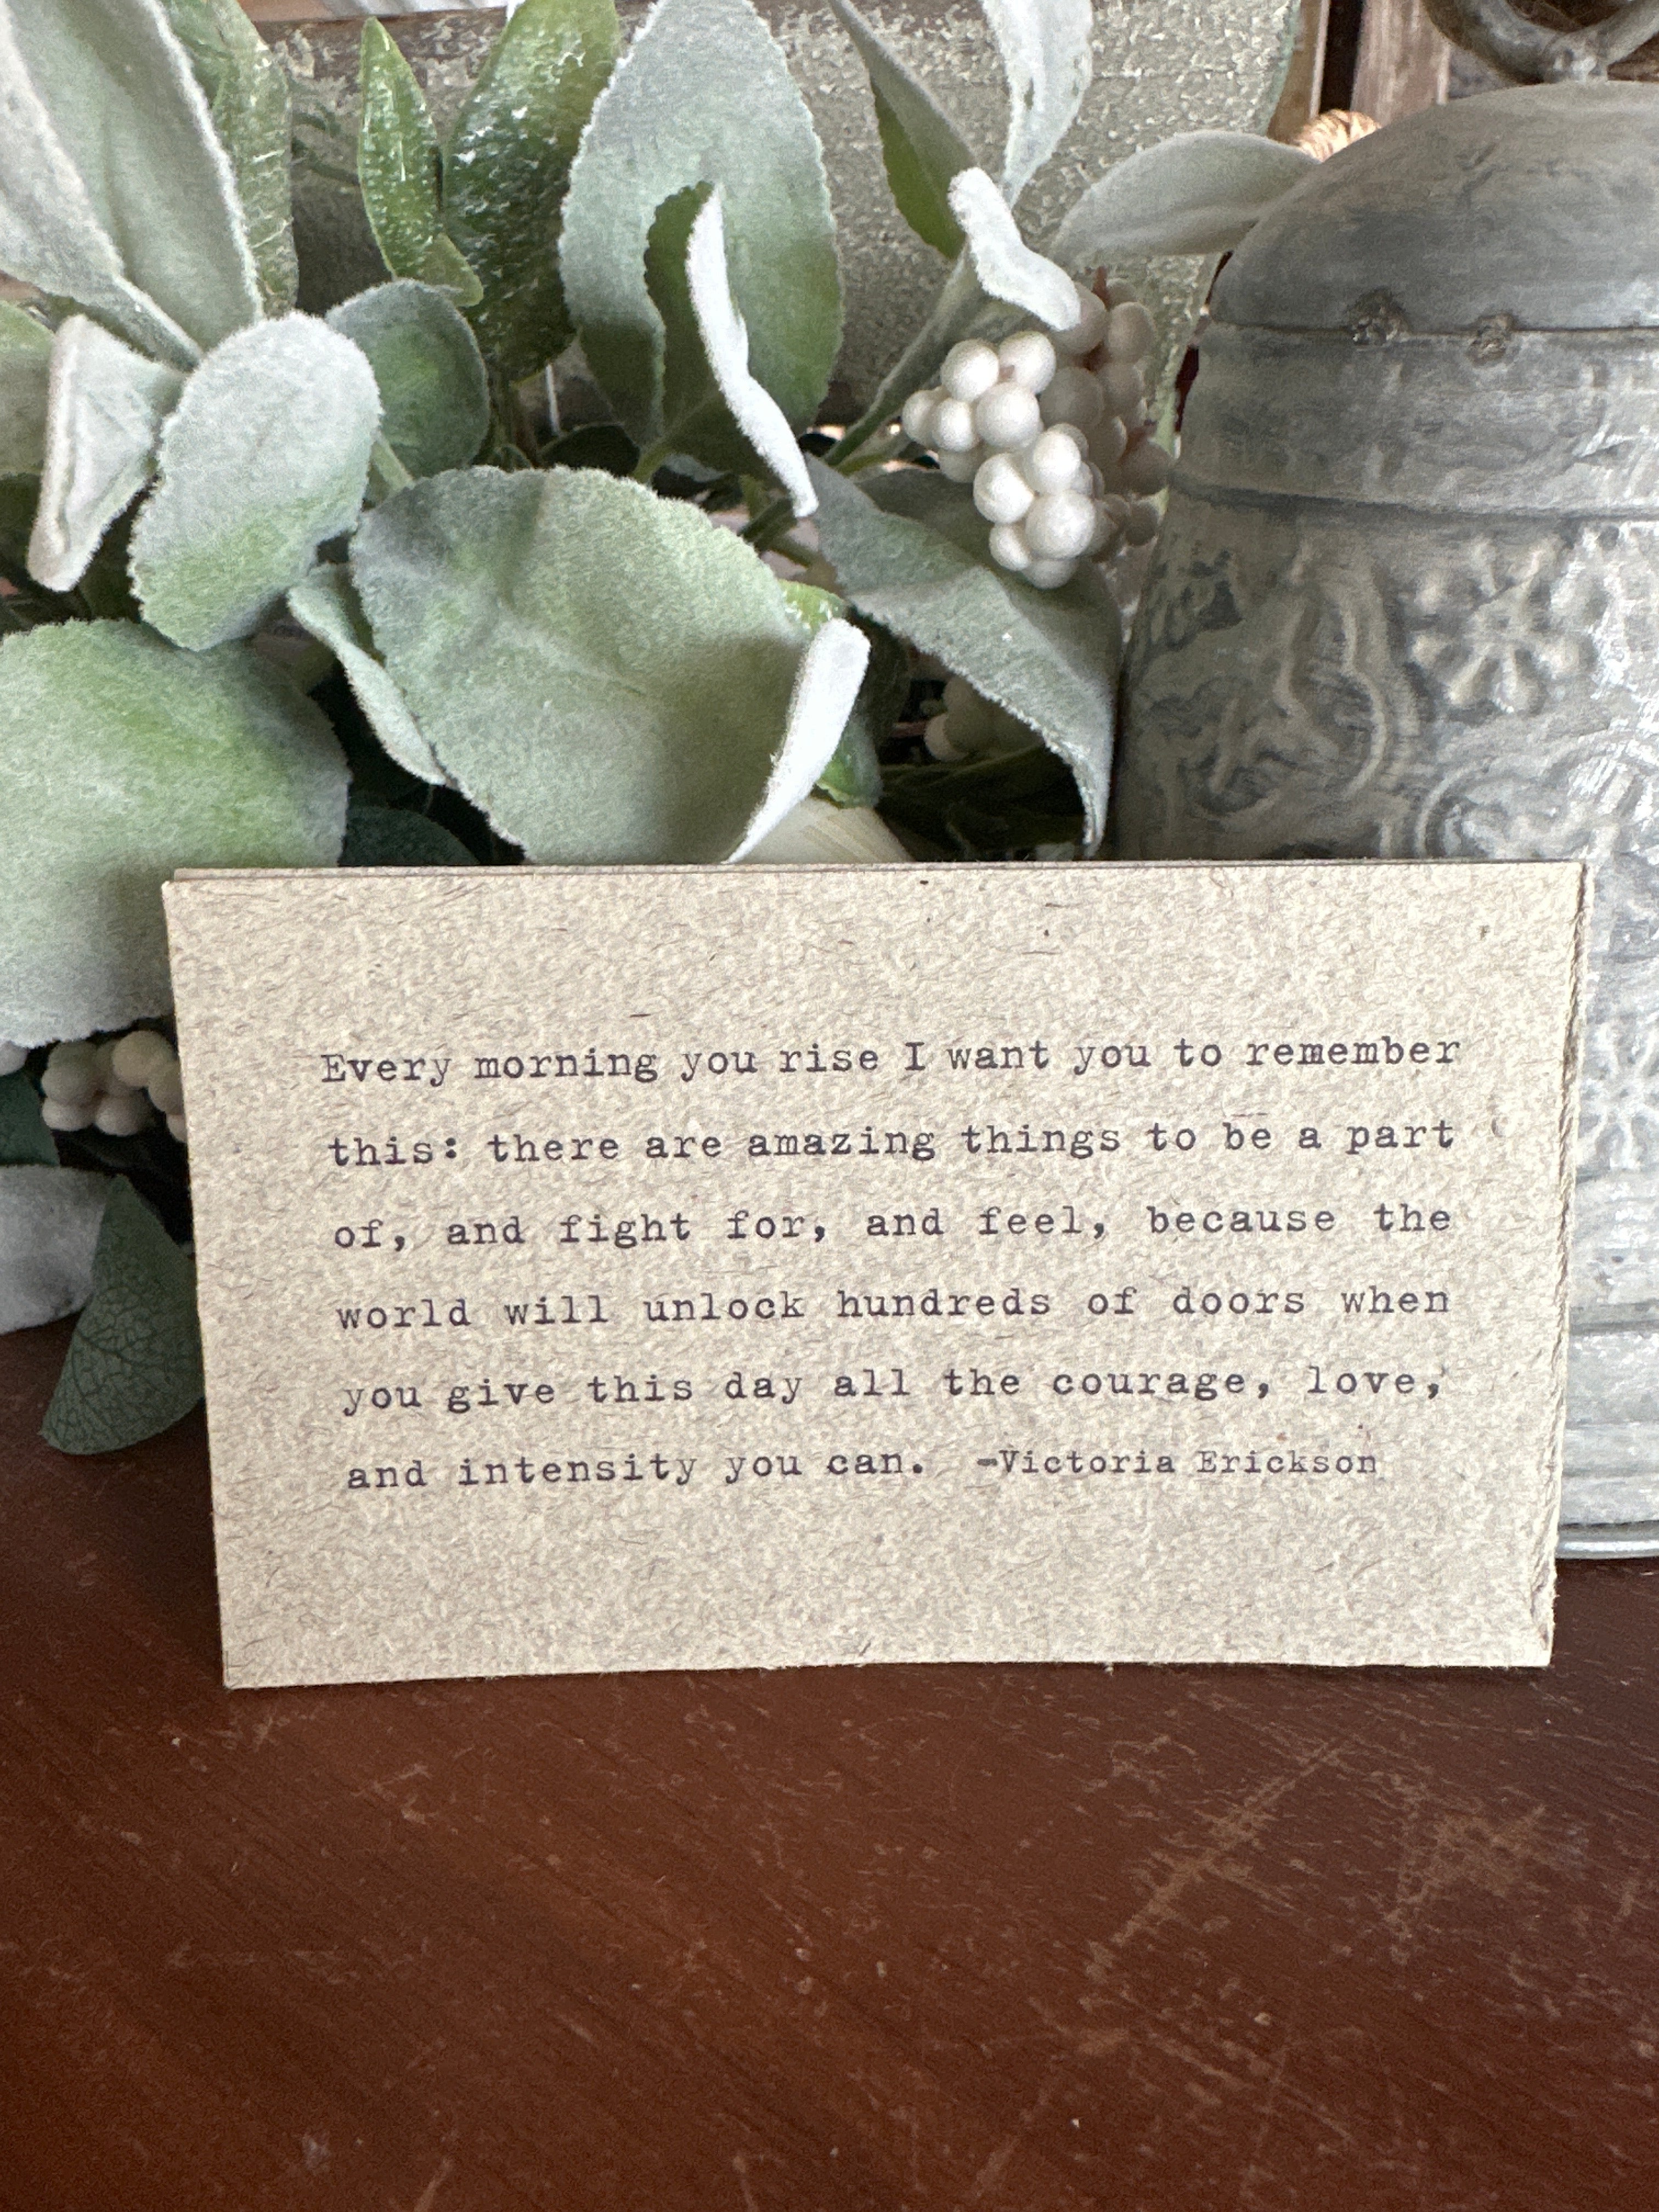 Every morning you rise I want you to remember
this: there are amazing things to be a part
of, and fight for, and feel, because the
world will unlock hundreds of doors when
you give this day all the courage, love,
and intensity you can. -Victoria Erickson